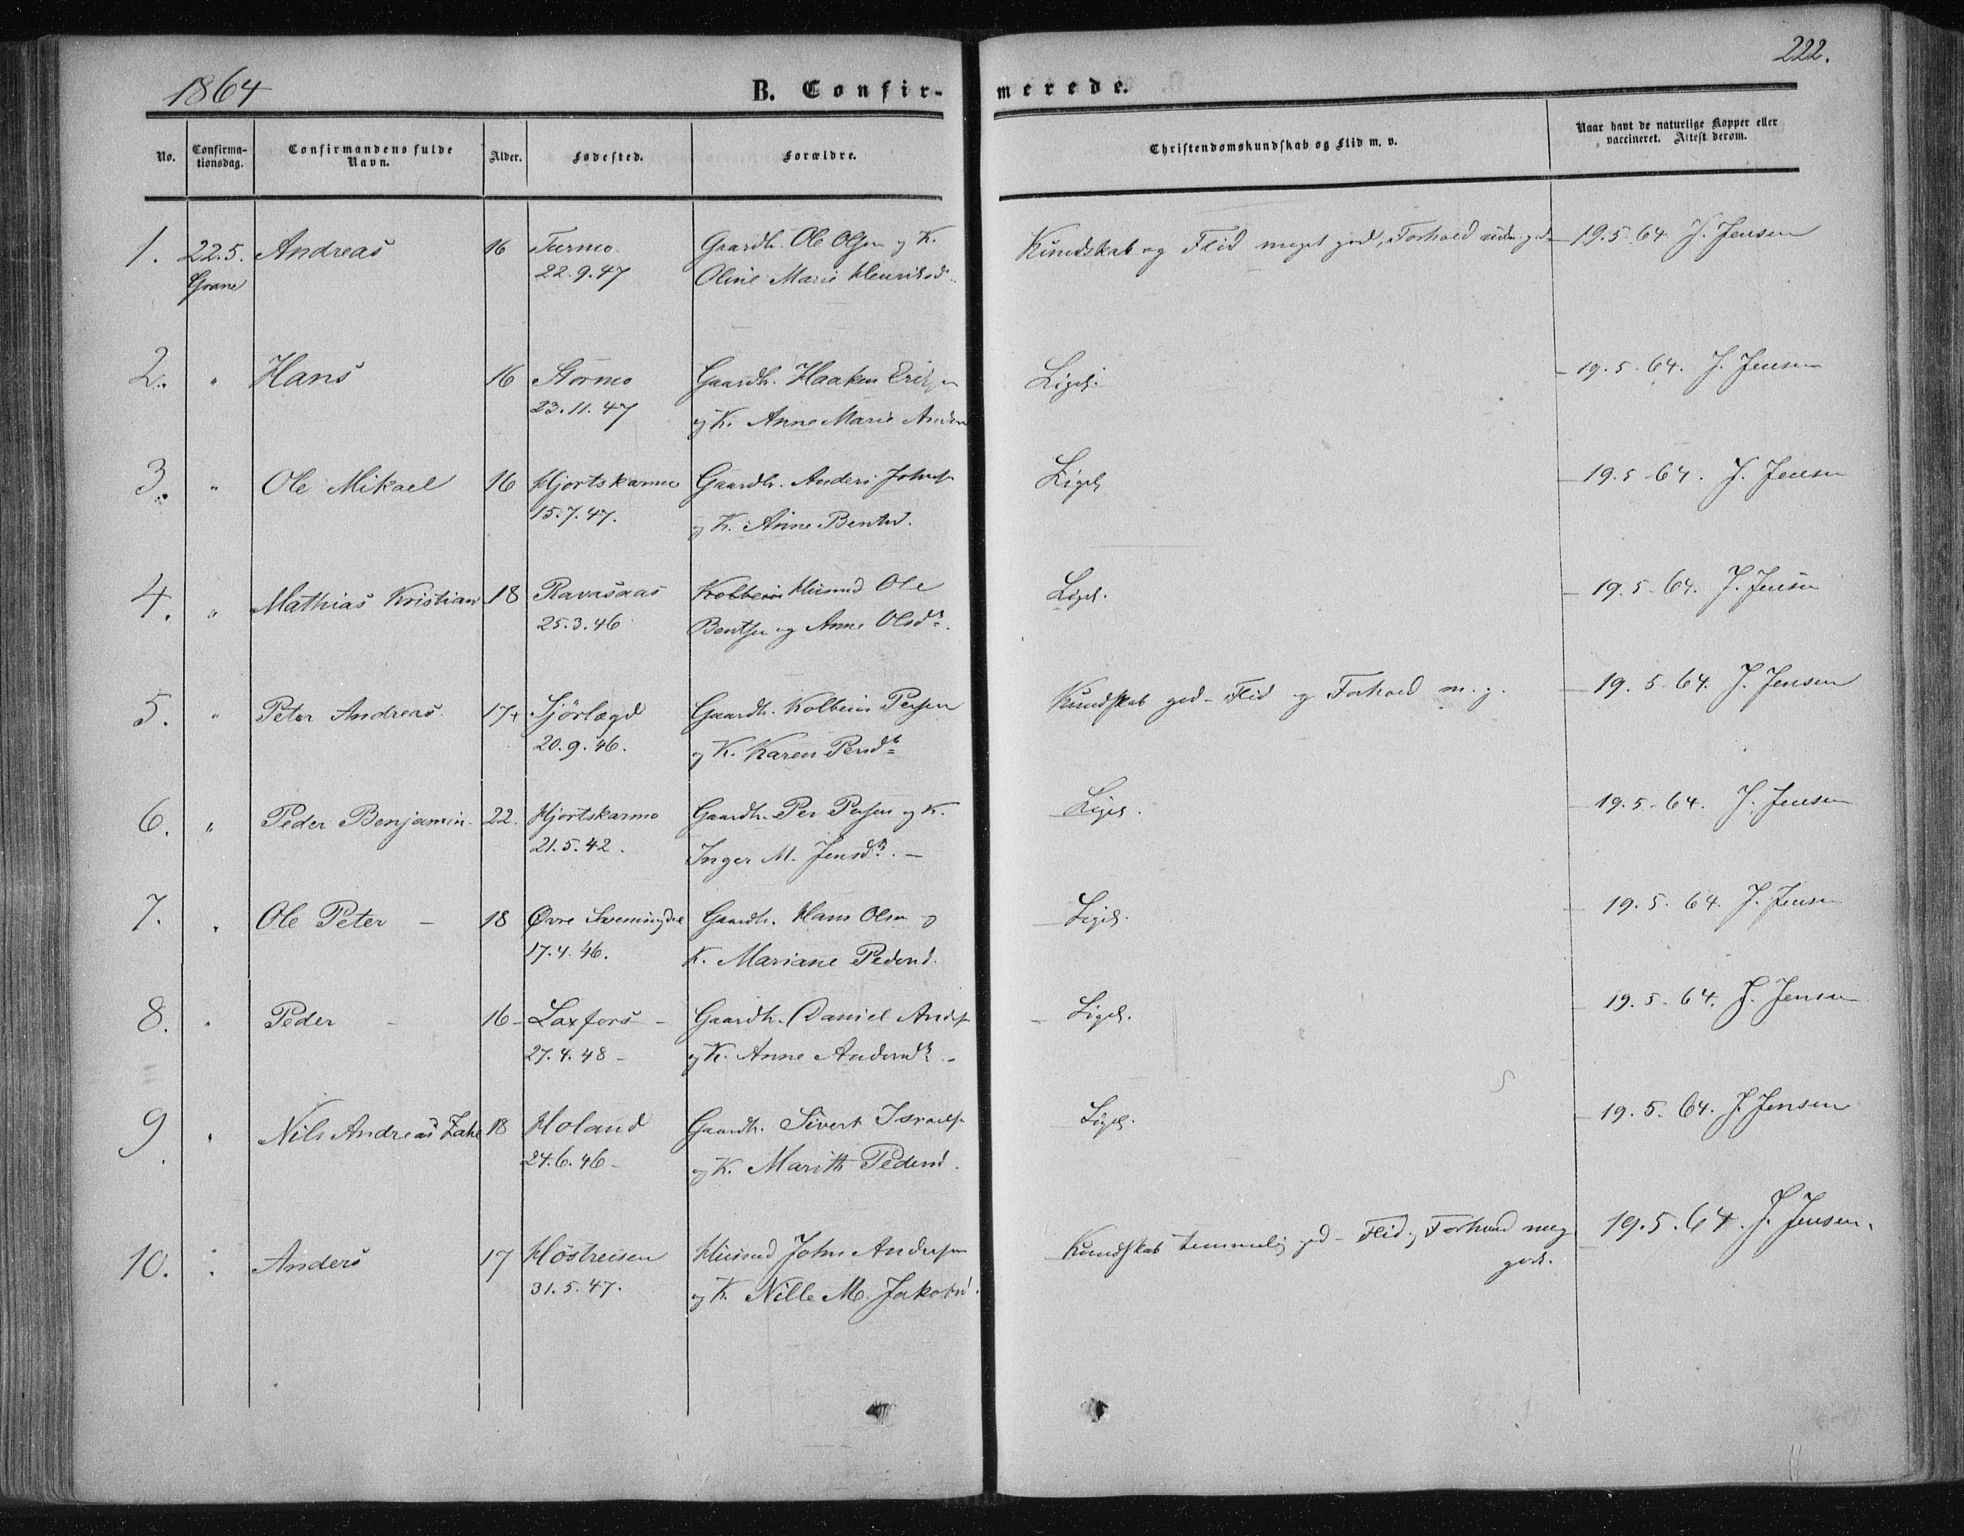 1864 B. Confir- merede. 222.
No. Confirma-tionsdag. Confirmandens fulde Navn. Alder. Fødested. Forældre. Christendomskundskab og Flid m. v. Naar havt de naturlige Kopper eller vaccineret. Attest derom.
1. 22.5. Andreas 16 Turmo Gaardb. Ole Olsen og K. Kundskab og Flid meget god, Forhold 19.5.64 J. Jensen
Grane 22.9.47 Oline Marie Henriksd.
2. " Hans 16 Stormo Gaardb. Haaken Ligel. 19.5.64. J. Jensen
23.11.47 og K. Anne Marie
3. " Ole Mikael 16 Hjortskarmo Gaardb. Anders Johns. Ligel. 19.5.64. J. Jensen
15.7.47. og K. Anne Bentsd.
4. " Mathias Kristian 18 Ravasaas Kolbein Husmd Ole Ligel. 19.5.64. J. Jensen
25.3.46 Bentsen og Anne Olsdr.
5. " Peter Andreas. 17 Sjörlægd Gaardb. Kolbein Persen Kundskab god - Flid og Forhold m. g. 19.5.64. J. Jensen
20.9.46. og K. Karen
6. " Peder Benjamin. 22. Hjortskarmo Gaardb. Per Persen og K. Ligel. 19.5.64. J. Jensen
21.5.42. Inger M. Jensdr. -
7. " Ole Peter - 18 Øvre Gaardb. Hans Olsen og Ligel. 19.5.64. J. Jensen
17.4.46. K. Mariane Pedersd.
8. " Peder - 16 - Laxfors - Gaardb. Daniel Anders. - Ligel. 19.5.64. J. Jensen
27.4.48 - og K. Anne Andersdr. -
9. " Nils Andreas 18 Holand Gaardb. Sivert Israels. Ligel. 19.5.64. J. Jensen
24.6.46 - og K. Marith Pedersd.
10. " Anders 17 Höstreisen Husmd John Andersen Kundskab temmelig god - Flid og Forhold meg 19.5.64. J. Jensen.
31.5.47. og K. Nille M. Jakobsd. godt.